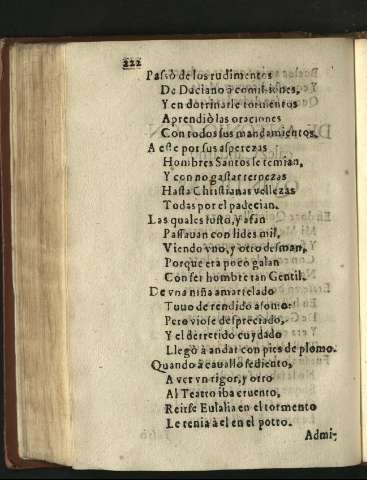 222
Passò de los rudimentos
De Daciano à comissiones,
Y en dotrinarle tormentos
Aprendiò las oraciones
Con todos sus mandamientos.
A este por sus asperezas
Hombres Santos le temian,
Y con no gastar terpezas
Hasta Christianas vellezas
Todas por el padecian.
Las quales susto, y afan
Passauan con lides mil,
Viendo vno, y otro desman,
Porque era poco galan
Con ser hombre tan Gentil.
De vna niña amartelado
Tuuo de rendido asomo:
Pero viose despreciado,
Y el derretido cuydado
Llegò à andar con pies de plomo.
Quando à cauallo sediento,
A ver vn rigor, y otro
Al Teatro iba cruento,
Reirse Eulalia en el tormento
Le tenia à el en el potro.
Admi-